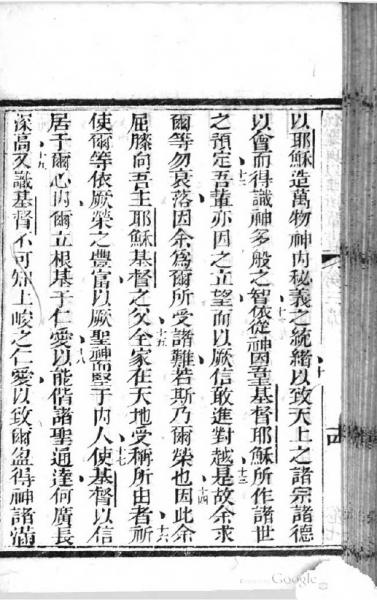 以耶穌造萬物神內秘義之統緒以致天上之諸宗諸德
十
以會而得識神多般之智依從神因吾主基督耶穌所作諸世
十一
十二
之預定吾輩亦因之立望而以厥信敢進對越是故余求
十三
爾等勿哀落因余爲爾所受諸難若斯乃爾榮也因此余
十四
屈膝向吾主耶穌基督之父全家在天地受稱所由者祈
十五
十六
使爾等依厥榮之豐富以厥聖神堅于內人使基督以信
十七
居于爾心內爾立根基于仁愛以能偕諸聖通達何廣長
十八
深高又識基督不可知上峻之仁愛以致爾盈得神諸滿
十九
Google